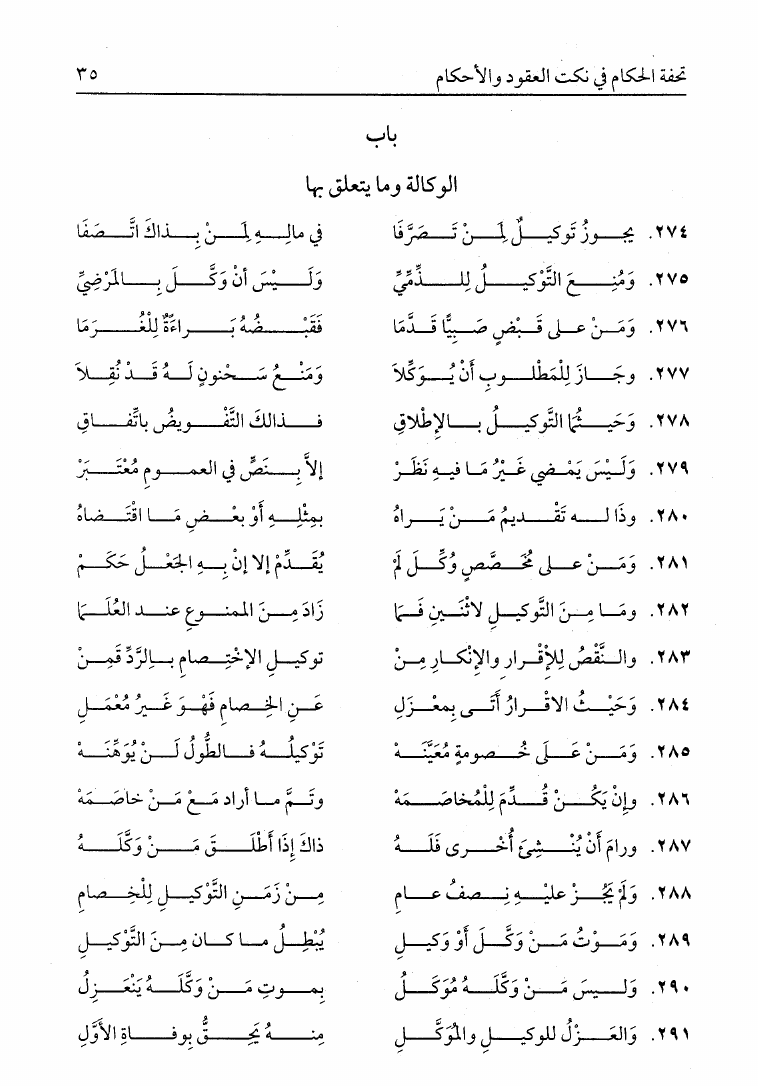 تحفة الحكام في نكت العقود والأحكام ٣٥
باب
الوكالة وما يتعلق بها
٢٧٤. يجوزُ تَوكيلٌ لِمنْ تَصَرَّفَا في مالِهِ لِمَنْ بِذاكَ اتَّصَفَا
٢٧٥. وَمُنِعَ التَّوْكيلُ لِلذِّمِّيِّ وَلَيْسَ أنْ وَكَّلَ بِالمَرْضِيِّ
٢٧٦. وَمَنْ على قَبْضٍ صَبِيًّا قَدَّمَا فَقَبْضُهُ بَراءَةٌ لِلغُرَمَا
٢٧٧. وجَازَ لِلْمَطْلوبِ أنْ يُوَكِّلاَ وَمَنْعُ سَحْنونٍ لَهُ قَدْ نُقِلاَ
٢٧٨. وَحَيْثُما التَّوكيلُ بالإطْلاقِ فذالكَ التَّفْويضُ باتِّفاقِ
٢٧٩. وَلَيْسَ يَمْضي غَيْرُ مَا فيهِ نَظَرْ إلاَّ بِنَصٍّ في العمومِ مُعْتَبَرْ
٢٨٠. وذَا لَه تَقْديمُ مَنْ يَراهُ بمِثْلِهِ أوْ بعْضِ مَا اقْتَضاهُ
٢٨١. وَمَنْ على مُخَصَّصٍ وُكِّلَ لَمْ يُقَدِّمْ إلا إنْ بِهِ الجَعْلُ حَكَمْ
٢٨٢. ومَا مِنَ التَّوكيلِ لاثْنَينِ فَمَا زَادَ مِنَ الممنوعِ عندَ العُلَمَا
٢٨٣. والنَّقْصُ لِلإقْرارِ والإنْكارِ مِنْ توكيلِ الاخْتِصامِ بالرَّدِّ قَمِنْ
٢٨٤. وَحَيْثُ الاقْرارُ أتَى بِمعْزَلِ عَنِ الخِصامِ فَهْوَ غَيرُ مُعْمَلِ
٢٨٥. وَمَنْ عَلَى خُصومةٍ مُعَيَّنَهْ تَوْكيلُهُ فالطُّولُ لَنْ يُوَهِّنَهْ
٢٨٦. وإنْ يَكُنْ قُدِّمَ لِلْمُخاصَمَهْ وتَمَّ ما أرادَ مَعْ مَنْ خاصَمَهْ
٢٨٧. ورامَ أنْ يُنْشِئَ أُخْرى فَلَهُ ذاكَ إذَا أطْلَقَ مَنْ وَكَّلَهُ
٢٨٨. وَلَمْ يَجُزْ عليْهِ نِصفُ عامِ مِنْ زَمَنِ التَّوْكيلِ لِلْخِصامِ
٢٨٩. وَمَوْتُ مَنْ وَكَّلَ أوْ وَكيلِ يُبْطِلُ ما كانَ مِنَ التَّوْكيلِ
٢٩٠. وَليسَ مَنْ وَكَّلَهُ مُوَكَّلُ بموتِ مَنْ وَكَّلَهُ يَنْعَزِلُ
٢٩١. وَالعَزْلُ للوكيلِ والمُوَكَّلِ مِنهُ يَحِقُّ بوفاةِ الأوَّلِ